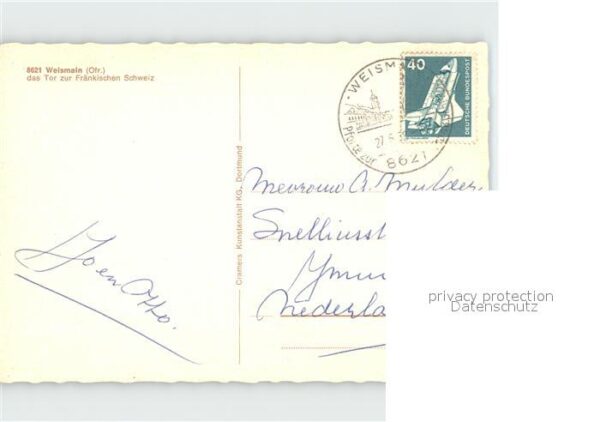 8621 Weismain (Ofr.)
das Tor zur Fränkischen Schweiz
WEISM
27.
8621
40
DEUTSCHE BUNDESPOST
Cramers Kunstanstalt KG., Dortmund
Mevrouw A. Mulder
Snelliusst
Ymui
Nederla
Jo en Otto.
privacy protection
Datenschutz